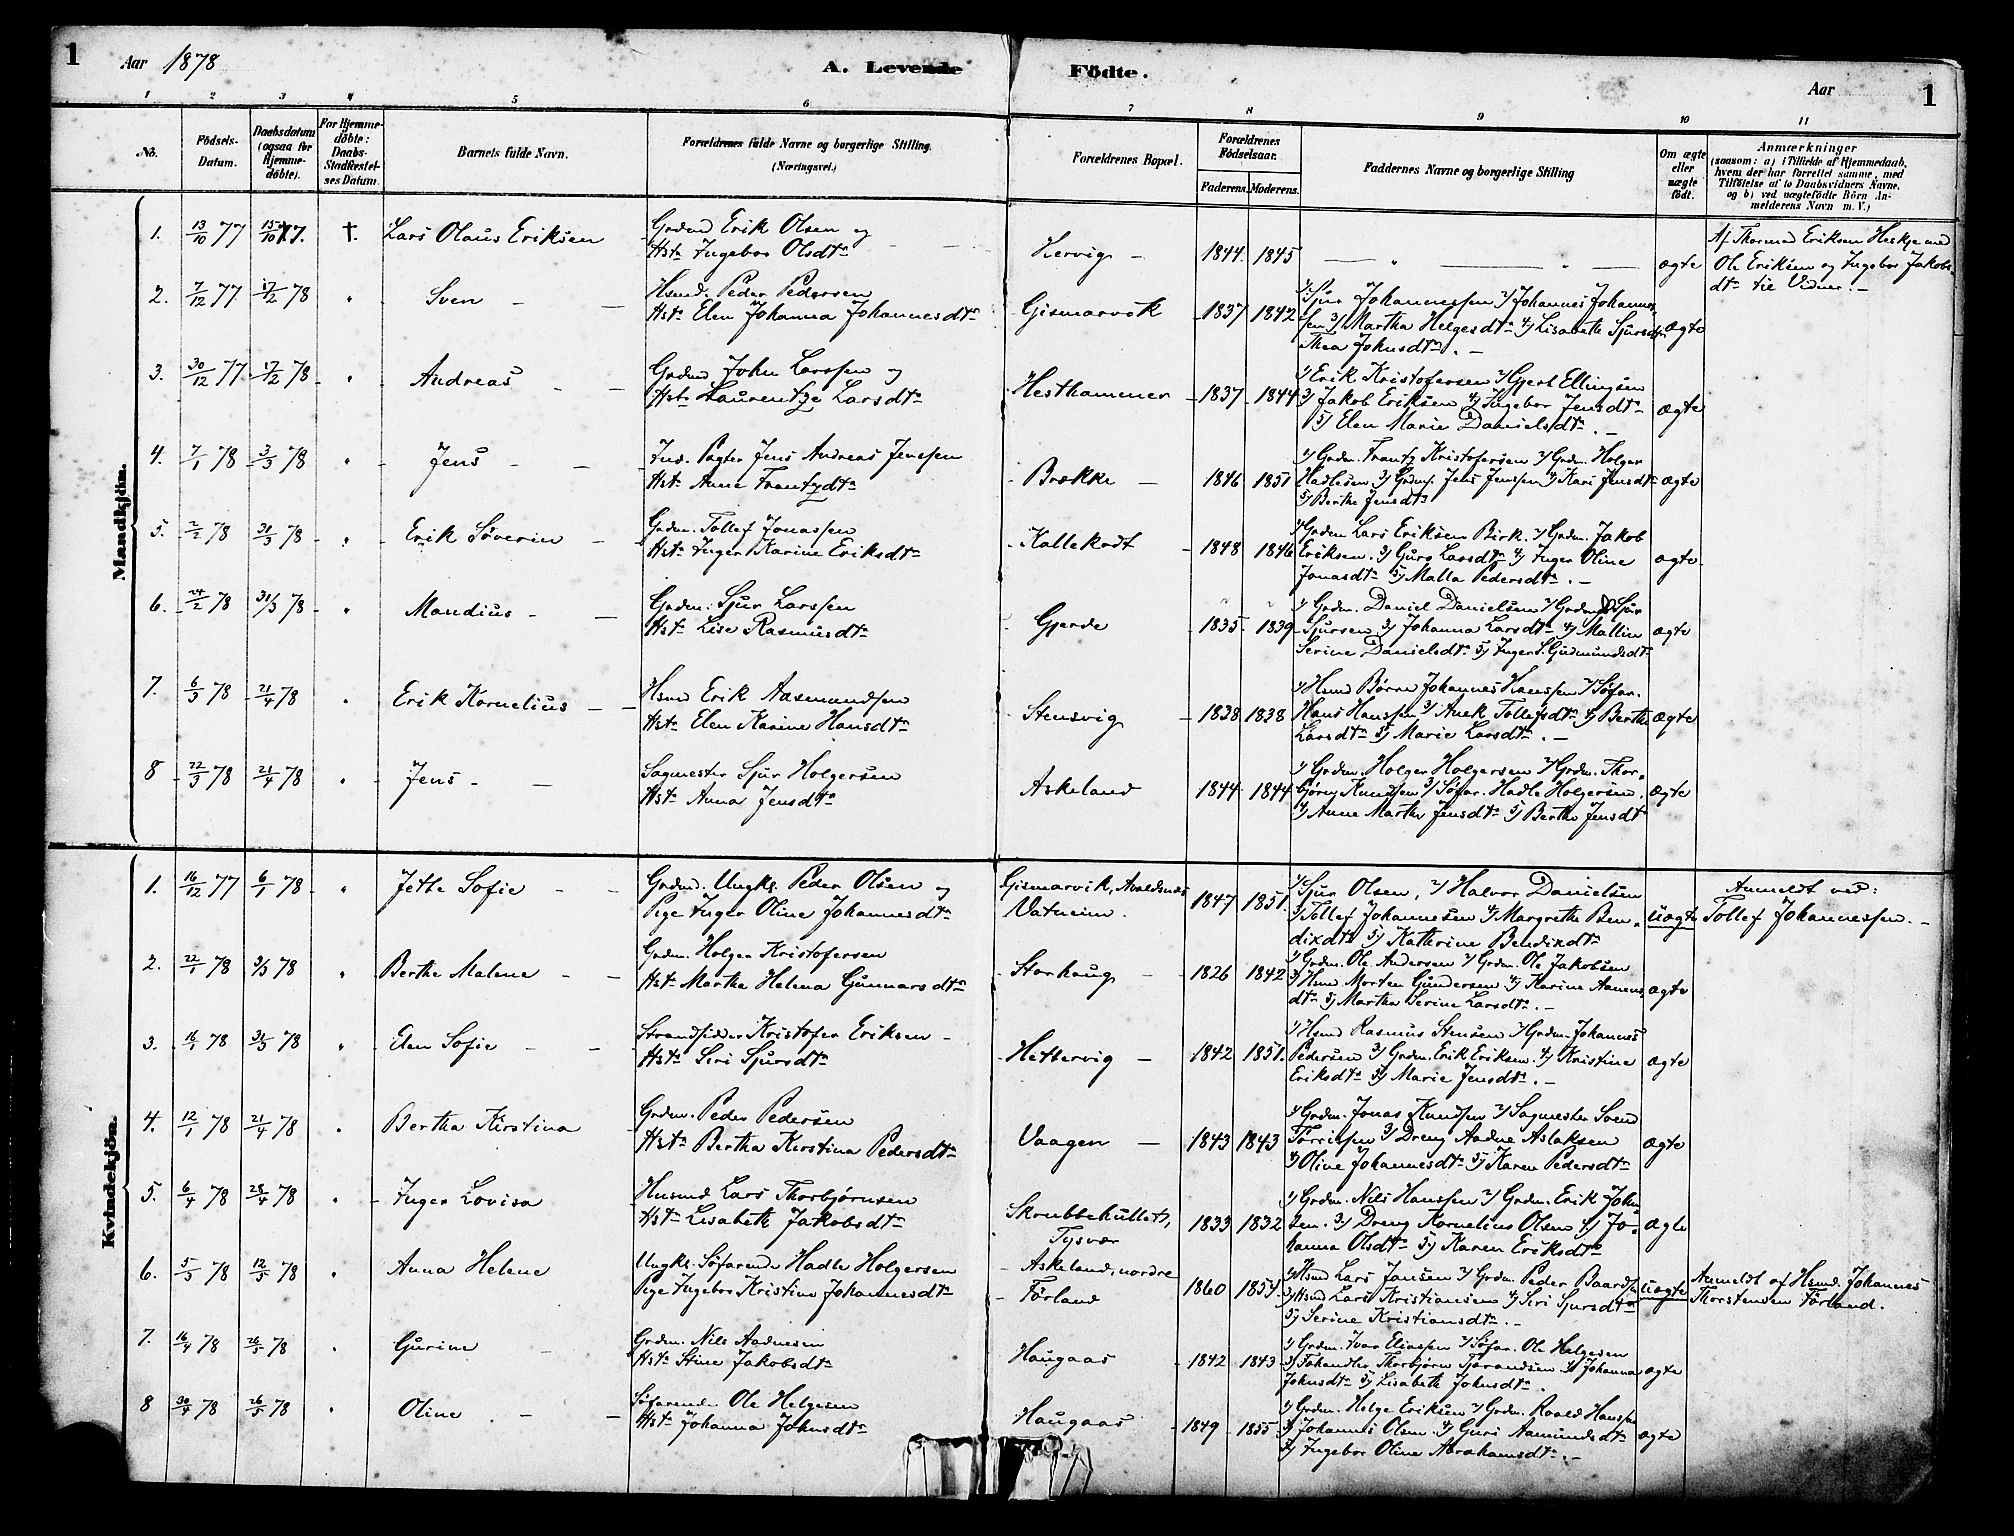 1
Aar 1878
A. Levende Födte.
Aar
1
1 2 3 4 5 6 7 8 9 10 11
No.
Födsels-Datum.
Daabsdatum (ogsaa for Hjemme-döbte).
For Hjemme-döbte: Daabs-Stadfæstel-ses Datum
Barnets fulde Navn.
Forældrenes fulde Navne og borgerlige Stilling. (Næringsvei.)
Forældrenes Bopæl.
Forældrenes Födselsaar.
Faderens. Moderens.
Faddernes Navne og borgerlige Stilling
Om ægte eller uægte födt.
Anmærkninger
(saasom: a) i Tilfælde af Hjemmedaab, hvem der har forrettet samme, med Tilföielse af to Daabsvidners Navne, og b) ved uægtefödte Börn An-melderens Navn m. V.)
Mandkjön.
1. 13/10 77 15/10 77. †. Lars Olaus Eriksen
Grdmd Erik Olsen og
Hst: Ingebor Olsdtr
Hervig 1844 1845 ægte
Af Thormod Eriksen Heskje med
Ole Eriksen og Ingebor Jakobs
dtr til Vidner.
2. 7/12 77 17/2 78 " Sven
Hsmd. Peder Pedersen
Hst: Elen Johanna Johannesdtr
Gismarvik 1837 1842
1/ Sjur Johannessen 2/ Johannes Johannes
sen 3/ Martha Helgesdtr 4/ Lisabeth Sjursdtr
Thea Johnsdtr.
ægte
3. 30/12 77 17/2 78 " Andreas
Grdmd John Larssen og
Hst: Laurentze Larsdtr
Hesthammer 1837 1844
1/ Erik Kristofersen 2/ Gjert Ellingsen
3/ Jakob Eriksen 4/ Ingebor Jensdtr
5/ Elen Marie Danielsdtr.
ægte
4. 7/1 78 3/3 78 " Jens
Ind. Pagter Jens Andreas Jenssen
Hst: Anne Frantzdtr
Brække 1846 1851
1/ Grdm. Frantz Kristofersen 2/ Grdm. Holger
Hadlesen 3/ Grdm. Jens Jenssen 4/ Kari Jensdtr
5/ Berthe Jensdtr
ægte
5. 2/2 78 31/3 78 " Erik Severin
Grdm. Tollef Jonassen
Hst: Inger Karine Eriksdtr
Kallekodt 1848 1846
1/ Grdm Lars Eriksen Birk. 2/ Grdm. Jakob
Eriksen. 3/ Guro Larsdtr 4/ Inger Oline
Jonasdtr 5/ Malla Pedersdtr.
ægte
6. 24/2 78 31/3 78 " Mandius
Grdm. Sjur Larssen
Hst: Lise Rasmusdtr
Gjerde 1835 1839
1/ Grdm. Daniel Danielsen 2/ Grdm Sjur
Sjursen 3/ Johanna Larsdtr 4/ Mallin
Serine Danielsdtr 5/ Inger S. Gudmundsdtr
ægte
7. 6/3 78 21/4 78 " Erik Kornelius
Hsmd Erik Aasmundsen
Hst: Elen Karine Hansdtr
Stensvig 1838 1838
1/ Hsmd Børre Johannes Hanssen 2/ Søfar.
Hans Hanssen 3/ Anek Tollefsdtr 4/ Berthe
Larsdtr 5/ Marie Larsdtr.
ægte
8 22/3 78 21/4 78 " Jens
Sagmester Sjur Holgersen
Hst: Anna Jensdtr
Askeland 1844 1844
1/ Grdm. Holger Holgersen 2/ Grdm. Thor-
bjørn Knudsen 3/ Søfar. Hadle Holgersen.
4/ Anne Marthe Jensdtr 5/ Berthe Jensdtr
ægte
Kvindekjön.
1. 16/12 77 6/1 78 " Jette Sofie
Grdmd. Ungk. Peder Olsen og
Pige Inger Oline Johannesdtr
Gismarvik, Avaldsnes
Vatneim.
1847 1851
1/ Sjur Olsen, 2/ Halvor Danielsen
3/ Tollef Johannesen 4/ Margrethe Ben-
dixdtr 5/ Kathrine Bendixdtr
uægte
Anmeldt ved:
Tollef Johannessen.
2. 22/1 78 3/3 78 " Berthe Malene
Grdm. Holger Kristofersen
Hst: Martha Helena Gunnarsdtr
Storhaug 1826 1842
1/ Grdm. Ole Andersen 2/ Grdm. Ole Jakobsen
3/ Hsmd Morten Gundersen 4/ Karine Aanens
dtr 5/ Martha Serine Larsdtr.
ægte
3. 16/1 78 31/3 78 " Elen Sofie
Strandsidder Kristofer Eriksen
Hst: Siri Sjursdtr
Hettervig 1842 1851
1/ Hsmd Rasmus Stensen 2/ Grdm. Johannes
Pedersen 3/ Grdm. Erik Eriksen 4/ Kristine
Eriksdtr 5/ Marie Jensdtr.
ægte
4. 12/1 78 21/4 78 " Bertha Kirstina
Grdm. Peder Pedersen
Hst: Bertha Kirstina Pedersdtr
Vaagen 1843 1843
1/ Grdm. Jonas Knudsen 2/ Sagmester Svend
Torrissen 3/ Dreng Aadne Aslaksen
4/ Oline Johannesdtr 5/ Karen Pedersdtr
ægte
5. 6/4 78 28/4 78 " Inger Lovisa
Husmd Lars Thorbjørnsen
Hst: Lisabeth Jakobsdtr
Skrubbehullet,
Tysvær
1833 1832
1/ Grdm. Nils Hanssen 2/ Grdm. Erik John
sen. 3/ Dreng Kornelius Olsen 4/ Jo-
hanna Olsdtr 5/ Karen Eriksdtr
ægte
6. 5/3 78 12/5 78 " Anna Helene
Ungk. Søfarende Hadle Holgersen
Pige Ingebor Kristine Johannesdtr
Askeland, nordre
Førland
1860 1854
1/ Hsmd Lars Jansen 2/ Grdm. Peder Baards
3/ Hsmd Lars Kristiansen 4/ Siri Sjursdtr
5/ Serine Kristiansdtr.
uægte
Anmeldt af Hsmd. Johannes
Thorstensen Førland.
7. 16/4 78 26/5 78 " Gurine
Grdm. Nils Aadnesen
Hst: Stine Jakobsdtr
Haugaas 1842 1843
1/ Grdm. Ivar Eliassen 2/ Søfar. Ole Helgesen
3/ Thorbjørn Tjerandsen 4/ Johanna
Johnsdtr 5/ Lisabeth Johnsdtr.
ægte
8 30/4 78 26/5 78 " Oline
Søfarende Ole Helgesen
Hst: Johanna Johnsdtr
Haugaas 1849 1855
1/ Grdm. Helge Eriksen 2/ Grdm. Roald Hanssen
3/ Johannes Olsen 4/ Guri Aamundsdtr
5/ Ingebor Oline Abrahamsdtr.
ægte